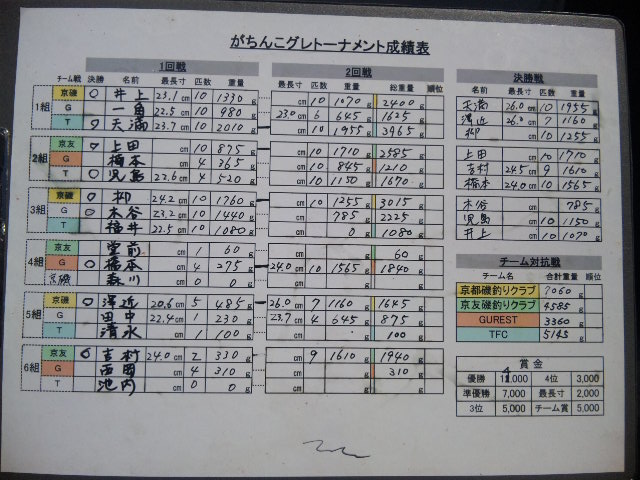 がちんこグレトーナメント成績表
1回戦 2回戦 決勝戦
チーム戦 決勝 名前 最長寸 匹数 重量 最長寸 匹数 重量 総重量 順位 名前 最長寸 匹数 重量
1組 京磯 ○ 井上 23.1 cm 10 1330 g cm 10 1070 g 2400 g
G 一角 22.5 cm 10 980 g 23.0 cm 6 645 g 1625 g
T ○ 天満 23.7 cm 10 2010 g cm 10 1955 g 3965 g
2組 京友 ○ 上田 cm 10 875 g cm 10 1710 g 2585 g
G 橋本 cm 4 365 g cm 10 845 g 1210 g
T ○ 児島 22.6 cm 4 520 g cm 10 1150 g 1670 g
3組 京磯 ○ 柳 24.2 cm 10 1760 g cm 10 1255 g 3015 g
G ○ 木谷 23.2 cm 10 1440 g cm 785 g 2225 g
T 福井 22.5 cm 10 1080 g cm 0 g 1080 g
4組 京友 堂前 cm 1 60 g cm g 60 g
G ○ 橋本 cm 4 275 g 24.0 cm 10 1565 g 1840 g
京磯 森川 cm 0 0 g cm g g
5組 京磯 ○ 澤近 20.6 cm 5 485 g 26.0 cm 7 1160 g 1645 g
G 田中 22.4 cm 1 230 g 23.7 cm 4 645 g 875 g
T 清水 cm 1 100 g cm g 100 g
6組 京友 ○ 吉村 24.0 cm 2 330 g cm 9 1610 g 1940 g
G 西岡 cm 4 310 g cm g 310 g
T 池内 cm 0 0 g cm g g
天満 26.0 cm 10 1955 g
澤近 26.0 cm 7 1160 g
柳 cm 10 1255 g
上田 cm 10 1710 g
吉村 24.5 cm 9 1610 g
橋本 24.0 cm 10 1565 g
木谷 cm 785 g
児島 cm 10 1150 g
井上 cm 10 1070 g
チーム対抗戦
チーム名 合計重量 順位
京都磯釣りクラブ 7060 g
京友磯釣りクラブ 4585 g
GUREST 3360 g
TFC 5145 g
賞金
優勝 11,000 4位 3,000
準優勝 7,000 最長寸 2,000
3位 5,000 チーム賞 5,000